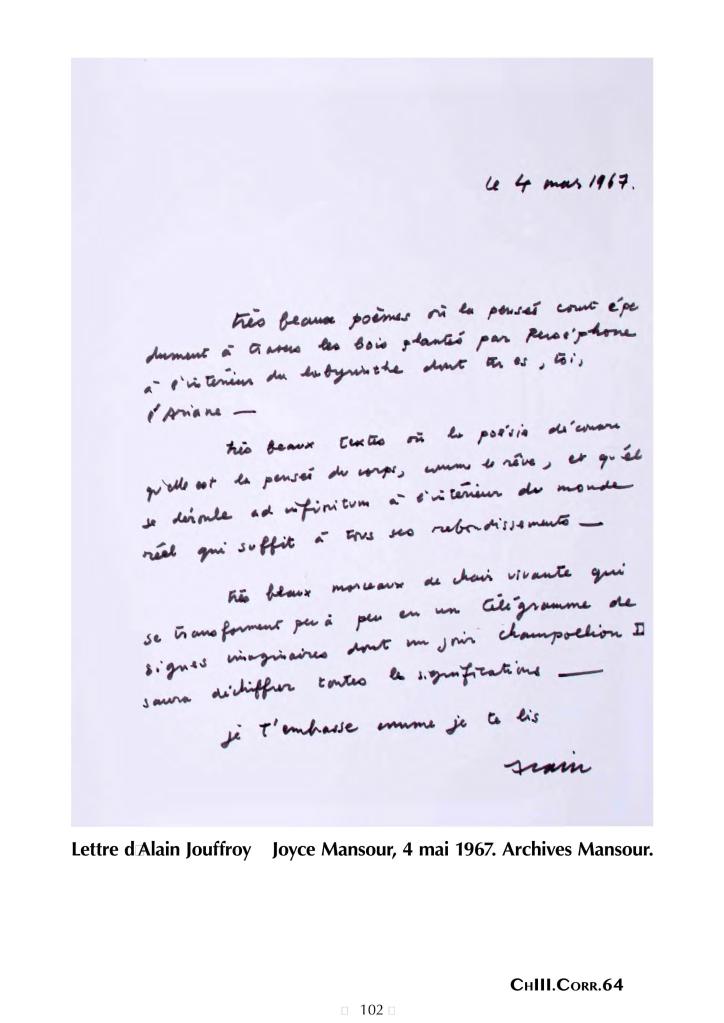 le 4 mars 1967.
très beaux poèmes où la pensée court épe
dument à travers les bois plantés par Perséphone
à l'intérieur du labyrinthe dont tu es, toi,
l'Ariane —
très beaux textes où la poésie découvre
qu'elle est la pensée du corps, comme le rêve, et qu'el
se déroule ad infinitum à l'intérieur du monde
réel qui suffit à tous ses rebondissements —
très beaux morceaux de chair vivante qui
se transforment peu à peu en un télégramme de
signes imaginaires dont un jour Champollion II
saura déchiffrer toutes les significations —
je t'embrasse comme je te lis
Alain
Lettre d Alain Jouffroy Joyce Mansour, 4 mai 1967. Archives Mansour.
CHIII.CORR.64
102